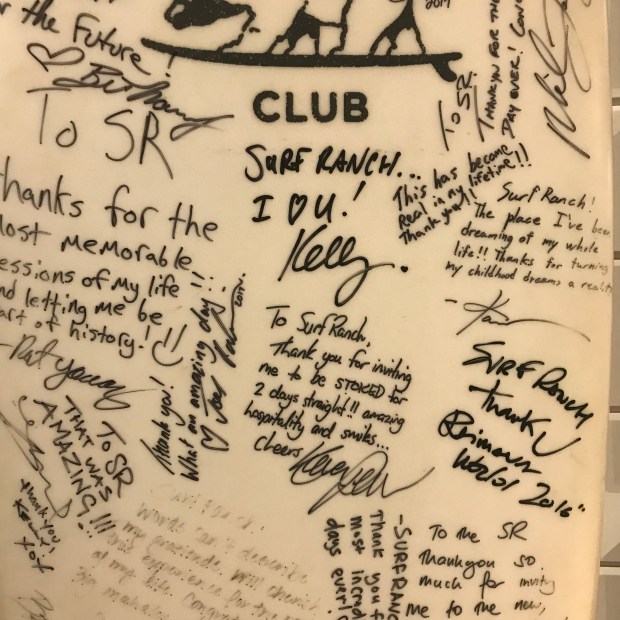 r the Future!
2017
CLUB
To SR
Thanks for the
most memorable
sessions of my life
and letting me be
part of history!!!
- Pat
SURF RANCH...
I ♥ U!
Kelly.
This has become
Real in my lifetime!!
Thank you!!
To SR.
THANK YOU FOR THE
DAY EVER!
Surf Ranch!
The place I've been
dreaming of my whole
life!! Thanks for turning
my childhood dreams a reality
To Surf Ranch,
Thank you for inviting
me to be STOKED for
2 days straight!! amazing
hospitality and smiles...
Cheers
Thank you!
What an amazing day!!
SURF RANCH
thank U
WORLD 2016"
To SR
THAT WAS
AMAZING!!!
thank you!
xox
Words can't describe
my gratitude. Will cherish
this experience for the
of my life.
-SURF RANC
Thank you f
most incred
days ever!
To the SR
Thankyou so
much for invity
me to the new,